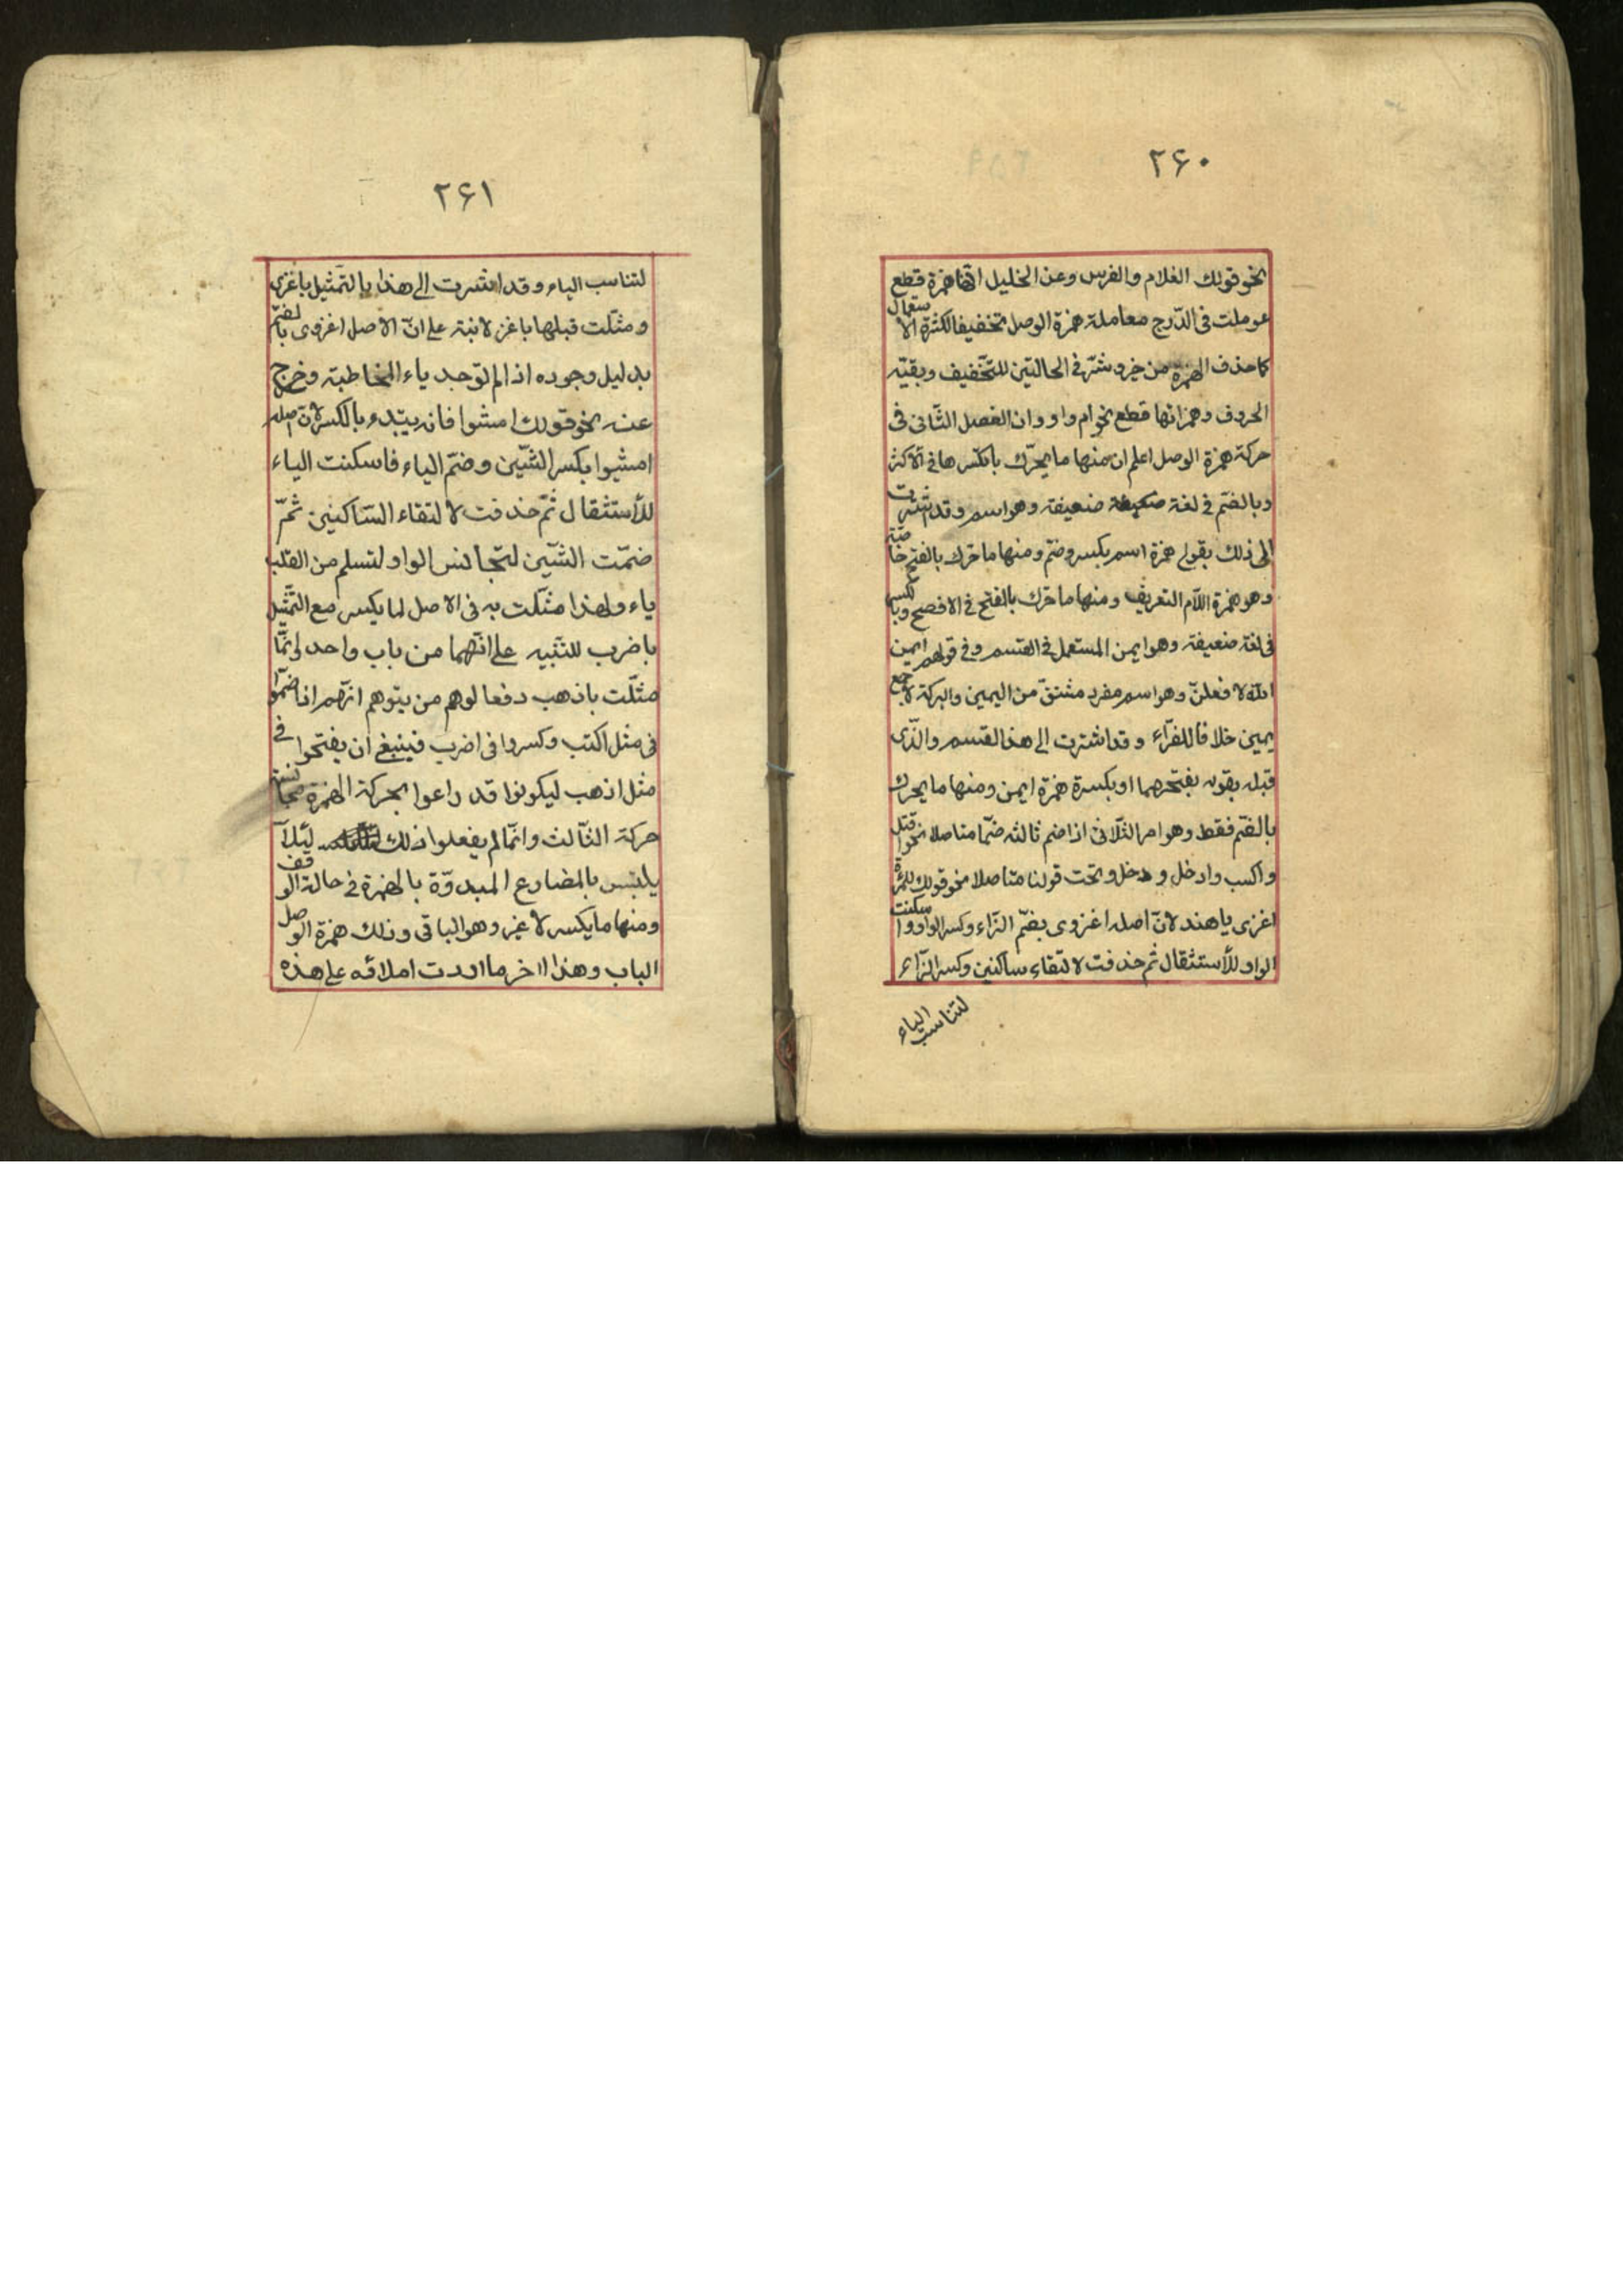 ۲۶۰
نحو قولك الغلام والفرس وعن الخليل انّها همزة قطع
عوملت فى الدّرج معاملة همزة الوصل تخفيفا لكثرة الاستعمال
كما حذف الهمزة من خير وشرّ فى الحالتين للتّخفيف وبقيّه
الحروف وهمزاتها قطع نحو ام واو وان الفصل الثّانى فى
حركة همزة الوصل اعلم ان منها ما يحرّك بالكسر ها فى الاكثر
وبالضّم فى لغة ضعيفة وهو اسم وقد اشرت
الى ذلك بقولى همزة اسم بكسر وضم ومنها ما حرّك بالفتح خاصّة
وهو همزة اللّام التعريف ومنها ما حرّك بالفتح فى الافصح وبالكسر
فى لغة ضعيفة وهو ايمن المستعمل فى القسم وفى قولهم ايمن
اللّه لا فعلنّ وهو اسم مفرد مشتقّ من اليمين والبركة لا جمع
يمين خلافا للفرّاء وقد اشرت الى هذا القسم والّذى
قبله بقوله بفتحهما او بكسرة همزة ايمن ومنها ما يحرك
بالضّم فقط وهو امر الثّلاثى اذا ضم ثالثه ضمّا متاصلا نحو اقتل
واكتب وادخل ودخل وتحت قولنا متاصلا نحو قولك للمرأة
اغزى يا هند لانّ اصله اغزوى بضمّ الزّاء وكسر الواو واسكنت
الواو للأستثقال ثم حذفت لالتقاء ساكنين وكسر الزّاء
لتناسب الياء
۲۶۱
لتناسب الياء وقد اشرت الى هذا بالتّمثيل باغزى
ومثّلت قبلها باغز لانبّه على انّ الاصل اغزوى بالضّم
بدليل وجوده اذا لم توجد ياء المخاطبة وخرج
عنه نحو قولك امشوا فانه يبتدء بالكسر لانّ اصله
امشيوا بكسر الشّين وضمّ الياء فاسكنت الياء
للأستثقال ثمّ حذفت لالتقاء السّاكنين ثمّ
ضمّت الشّين لتجانس الواو ولتسلم من القلب
ياء ولهذا مثّلت به فى الاصل لما يكسر مع التّمثيل
باضرب للتنبيه على انّهما من باب واحد وانّما
مثّلت باذهب دفعا لوهم من يتوهم انّهم اذا ضمّوا
فى مثل اكتب وكسروا فى اضرب فينبغى ان يفتحوا فى
مثل اذهب ليكونوا قد راعوا بحركة الهمزة مجانسة
حركة الثّالث وانّما لم يفعلوا ذلك ليّلاّ
يلتبس بالمضارع المبدوّة بالهمزة فى حالة الوقف
ومنها ما يكسر لا غير وهو الباقى وذلك همزة الوصل
الباب وهذا اخر ما اردت املائه على هذه